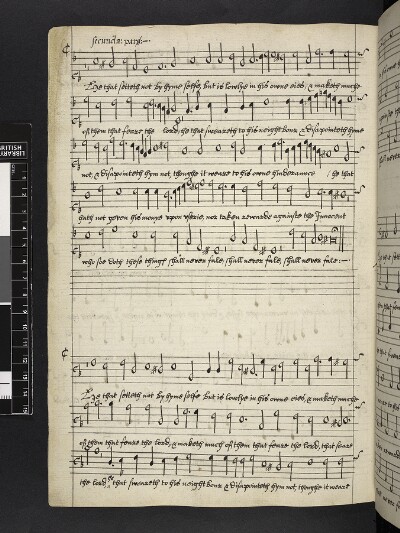 secunda: pars:—
He that setteth not by hym selfe, but is lowlye in his owne eies, & maketh muche
of them that feare the lord, he that sweareth to his neighboure & disapointeth hym
not, & disapointeth hym not, thoughe it weare to his owne hinderaunce he that
hath not geven his monye upon usurie, nor taken rewarde againste the Innocent
who soe doth these things shall never falle, shall never falle, shall never falle :—
He that setteth not by hym selfe but is lowlye in his owne eies, & maketh muche
of them that feare the lord, & maketh much of them that feare the lord, that feare
the lord, he that sweareth to his neighboure & disapointeth hym not, thoughe it weare
BRITISH LIBRARY